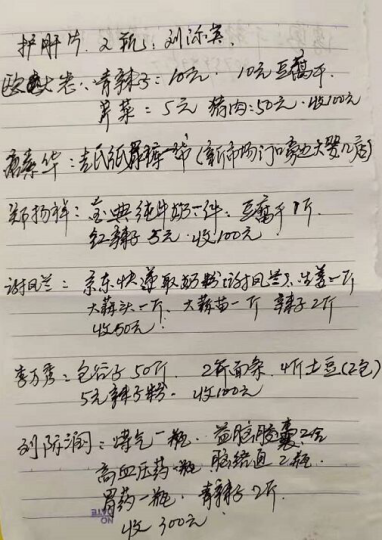 护肝片.2瓶:刘添英.
欧大岩:青辣子=10元.10元豆腐干.
芹菜=5元 猪肉:50元.收100元
高素华:老氏纸尿裤一命(新市场门口旁边大婴儿店)
郑扬祥:宝典纯牛奶一件.豆腐干1斤.
红辣子5元.收100元.
谢凤兰:京东快递取奶粉(谢凤兰).生姜一斤
大蒜头一斤.大蒜苗一斤 辣子2斤
收50元.
李万秀:包谷子50斤.2斤面条.4斤土豆(2包)
5元辣子粉.收100元.
刘际润:煤气一瓶.益脑胶囊2合
高血压药一瓶 脑络通2瓶.
胃药一瓶.青辣子2斤.
收300元.
DATE
NO